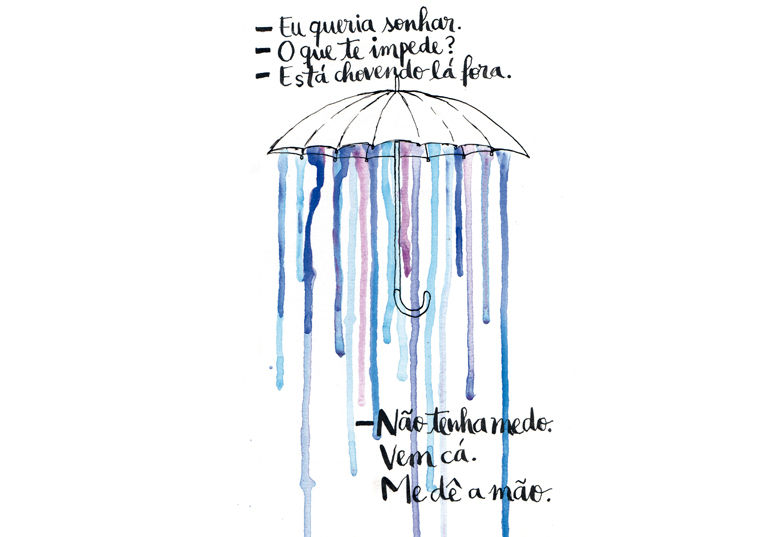 – Eu queria sonhar.
– O que te impede?
– Está chovendo lá fora.
– Não tenha medo.
Vem cá.
Me dê a mão.